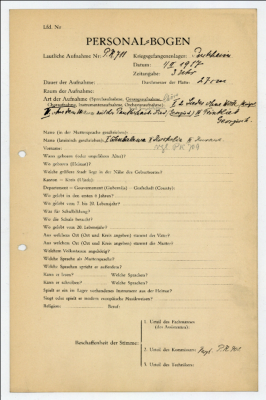 Lfd. Nr
PERSONAL-BOGEN
Lautliche Aufnahme Nr: P.K. 711
Kriegsgefangenenlager:
Datum: 1917
Zeitangabe: 3 Uhr
Dauer der Aufnahme:
Durchmesser der Platte: 27 cm
Raum der Aufnahme:
Art der Aufnahme (Sprechaufnahme, Gesangsaufnahme,
Choraufnahme, Instrumentenaufnahme, Orchesteraufnahme):
Name (in der Muttersprache geschrieben):
Name (lateinisch geschrieben):
vgl. PK 709
Vorname:
Wann geboren (oder ungefähres Alter)?
Wo geboren (Heimat)?
Welche größere Stadt liegt in der Nähe des Geburtsortes?
Kanton — Kreis (Ujedz):
Departement — Gouvernement (Gubernija) — Grafschaft (County):
Wo gelebt in den ersten 6 Jahren?
Wo gelebt vom 7. bis 20. Lebensjahr?
Was für Schulbildung?
Wo die Schule besucht?
Wo gelebt vom 20. Lebensjahr?
Aus welchem Ort (Ort und Kreis angeben) stammt der Vater?
Aus welchem Ort (Ort und Kreis angeben) stammt die Mutter?
Welchem Volksstamm angehörig?
Welche Sprache als Muttersprache?
Welche Sprachen spricht er außerdem?
Kann er lesen? Welche Sprachen?
Kann er schreiben? Welche Sprachen?
Spielt er ein im Lager vorhandenes Instrument aus der Heimat?
Singt oder spielt er modern europäische Musikweisen?
Religion: Beruf:
Beschaffenheit der Stimme:
1. Urteil des Fachmannes
(des Assistenten):
2. Urteil des Kommissars:
3. Urteil des Technikers: